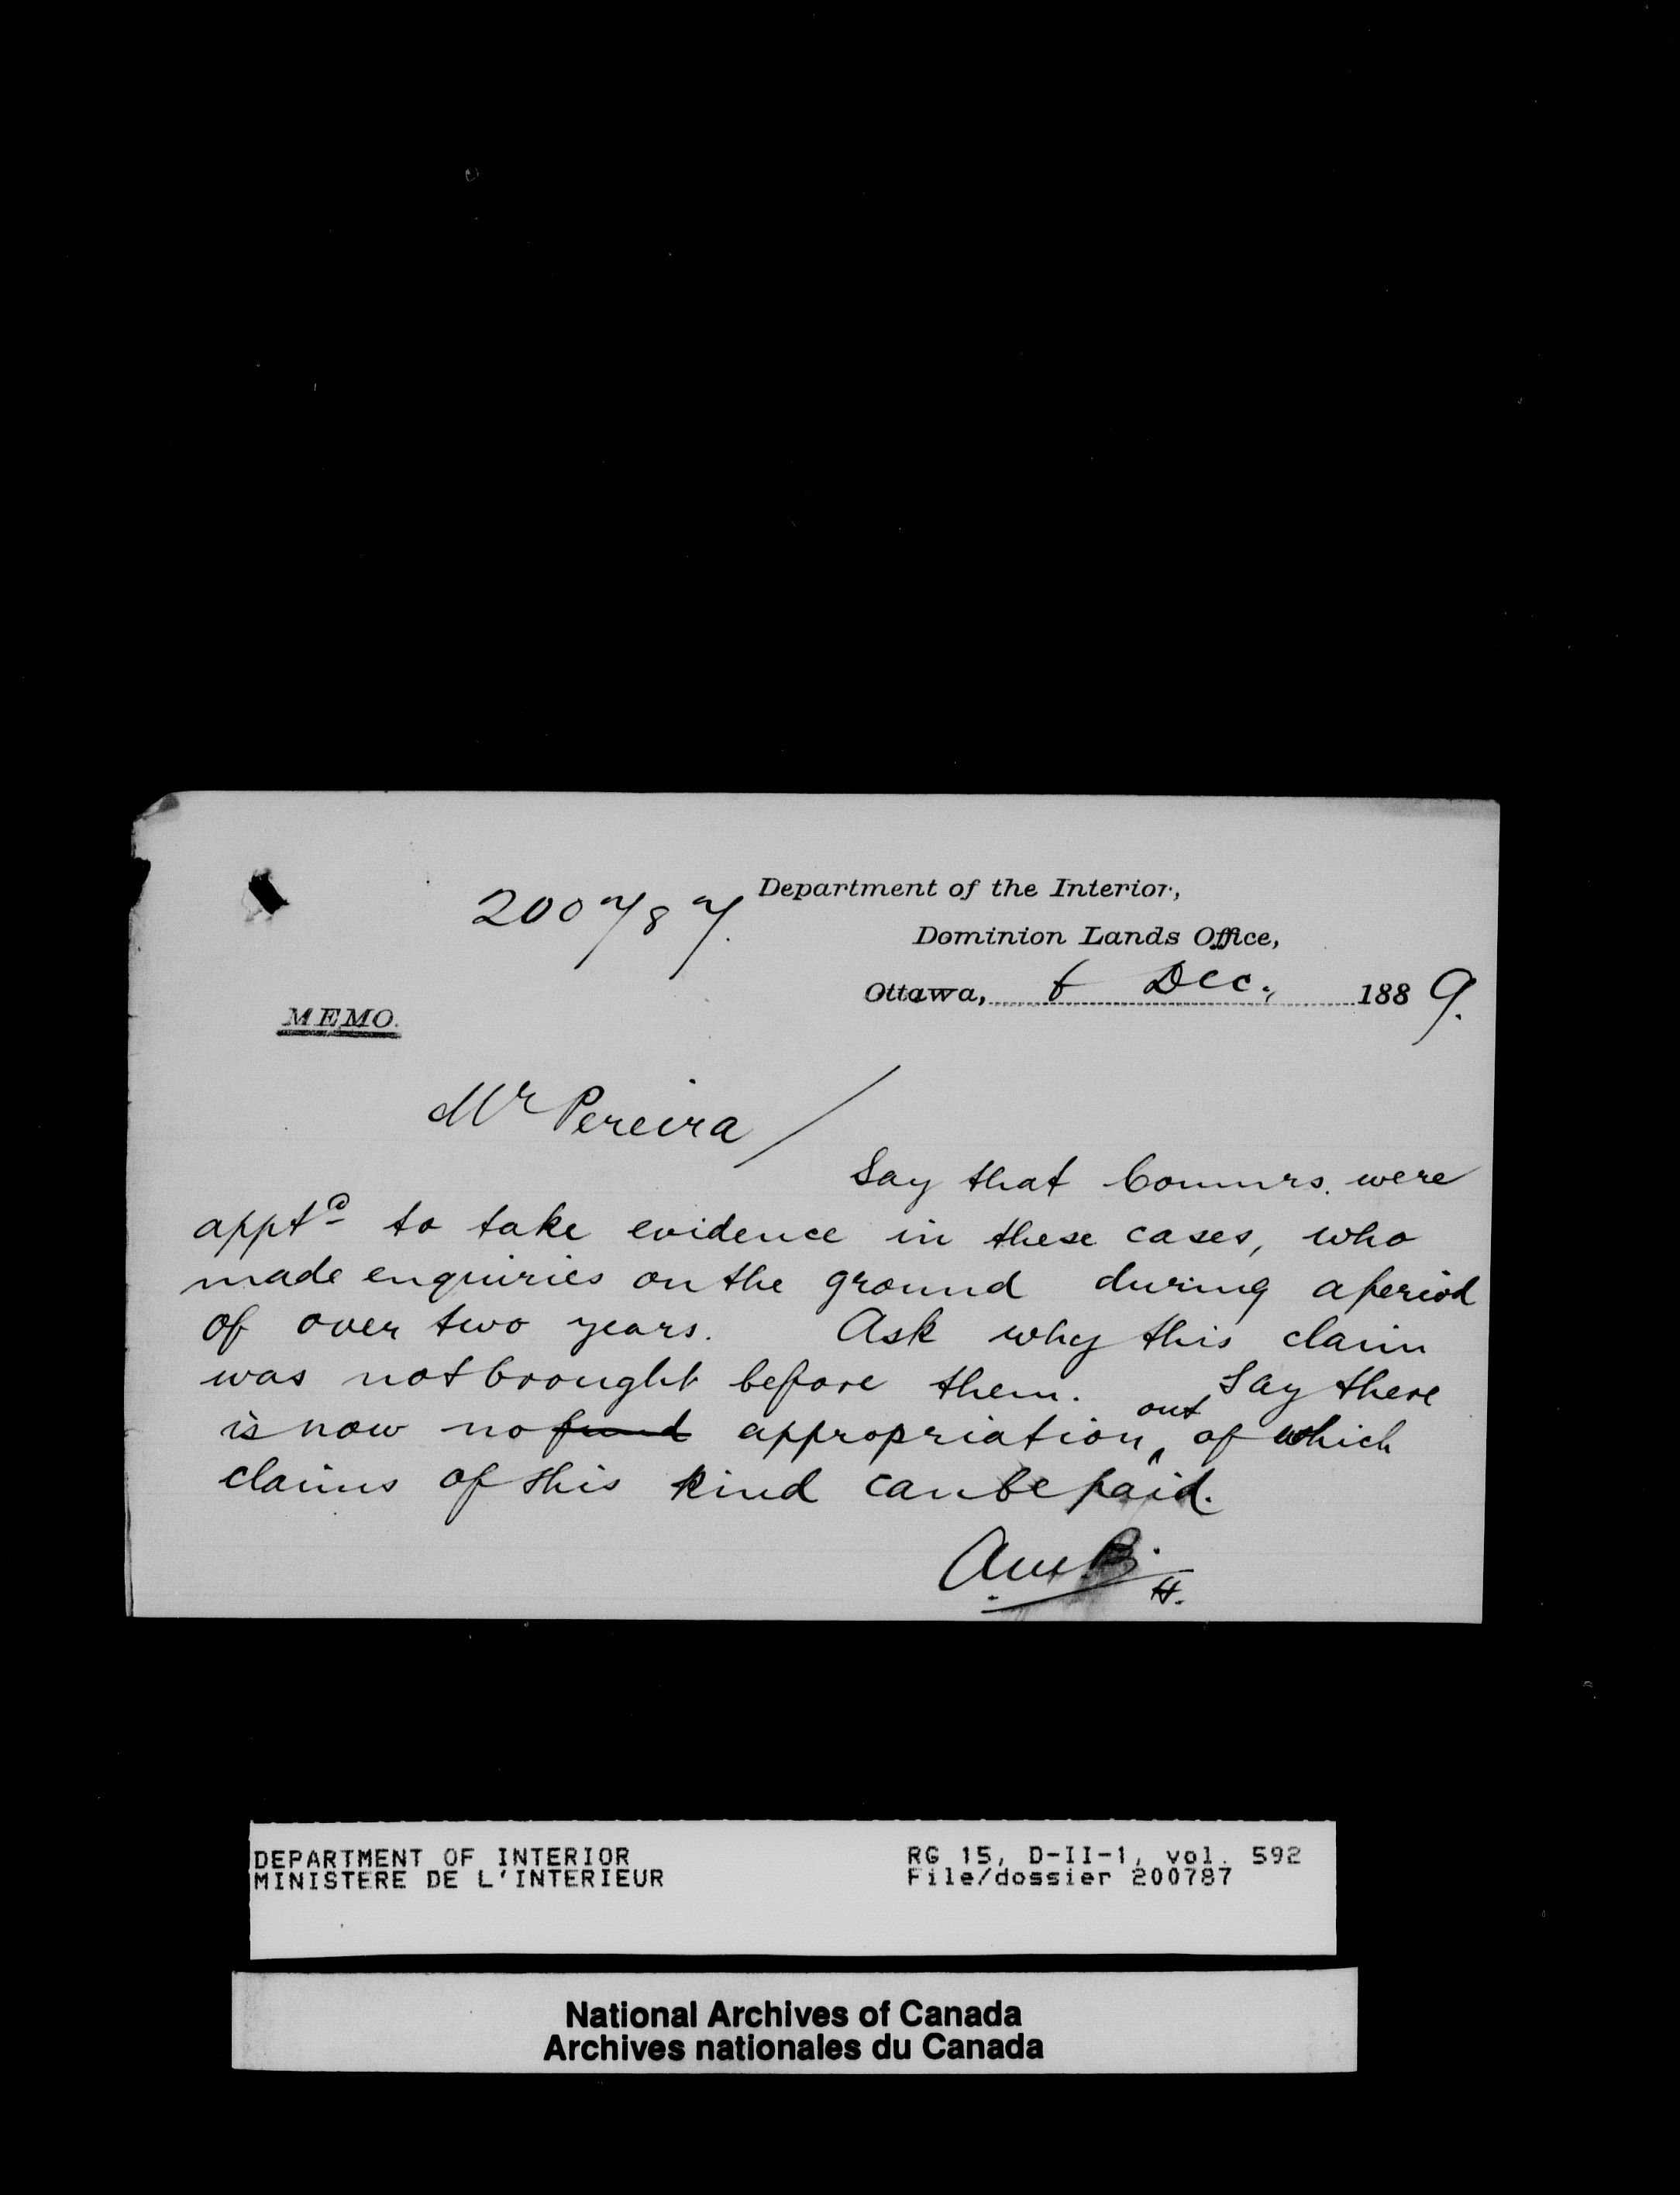 200787.
Department of the Interior,
Dominion Lands Office,
Ottawa, 6 Dec. 1889.
MEMO.
Mr Pereira /
Say that Commrs. were
apptd to take evidence in these cases, who
made enquiries on the ground during a period
of over two years. Ask why this claim
was not brought before them. Say there
is now no fund appropriation out of which
claims of this kind can be paid.
H.
DEPARTMENT OF INTERIOR
MINISTERE DE L'INTERIEUR
RG 15, D-II-1, vol. 592
File/dossier 200787
National Archives of Canada
Archives nationales du Canada